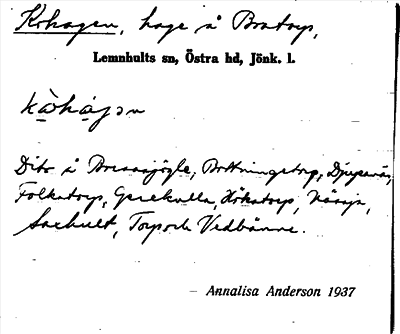 Kohagen, hage å Bratorp,
Lemnhults sn, Östra hd, Jönk. l.
kòhàgən
Dito å Brossjögle, Bottningstorp, Djupanäs,
Folkatorp, Greckulla, Hökatorp, Nässja,
Saxhult, Torp och Vedbänne.
– Annalisa Anderson 1937